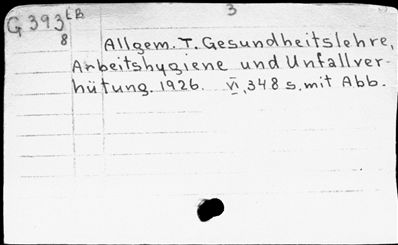 G 393 LB 3
8 Allgem. T. Gesundheitslehre,
Arbeitshygiene und Unfallver-
hütung. 1926. VI, 348 s. mit Abb.